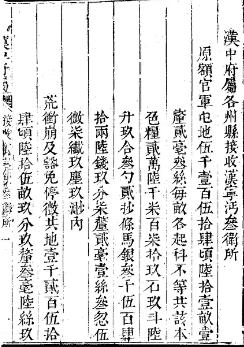 漢中府屬各州縣接收漢寧沔叁衛所
原額官軍屯地伍千壹百伍拾肆頃陸拾壹畝壹
釐貳毫叁絲每畝各起科不等共該本
色糧貳萬陸千柒百柒拾玖石玖斗陸
升玖合叁勺貳抄條馬銀叁千伍百肆
拾兩陸錢玖分柒釐貳毫壹絲叁忽伍
微柒纖玖塵玖渺內
荒衝崩及豁免停徵共地壹千貳百伍拾
肆頃陸拾伍畝玖分玖釐叁毫陸絲玖